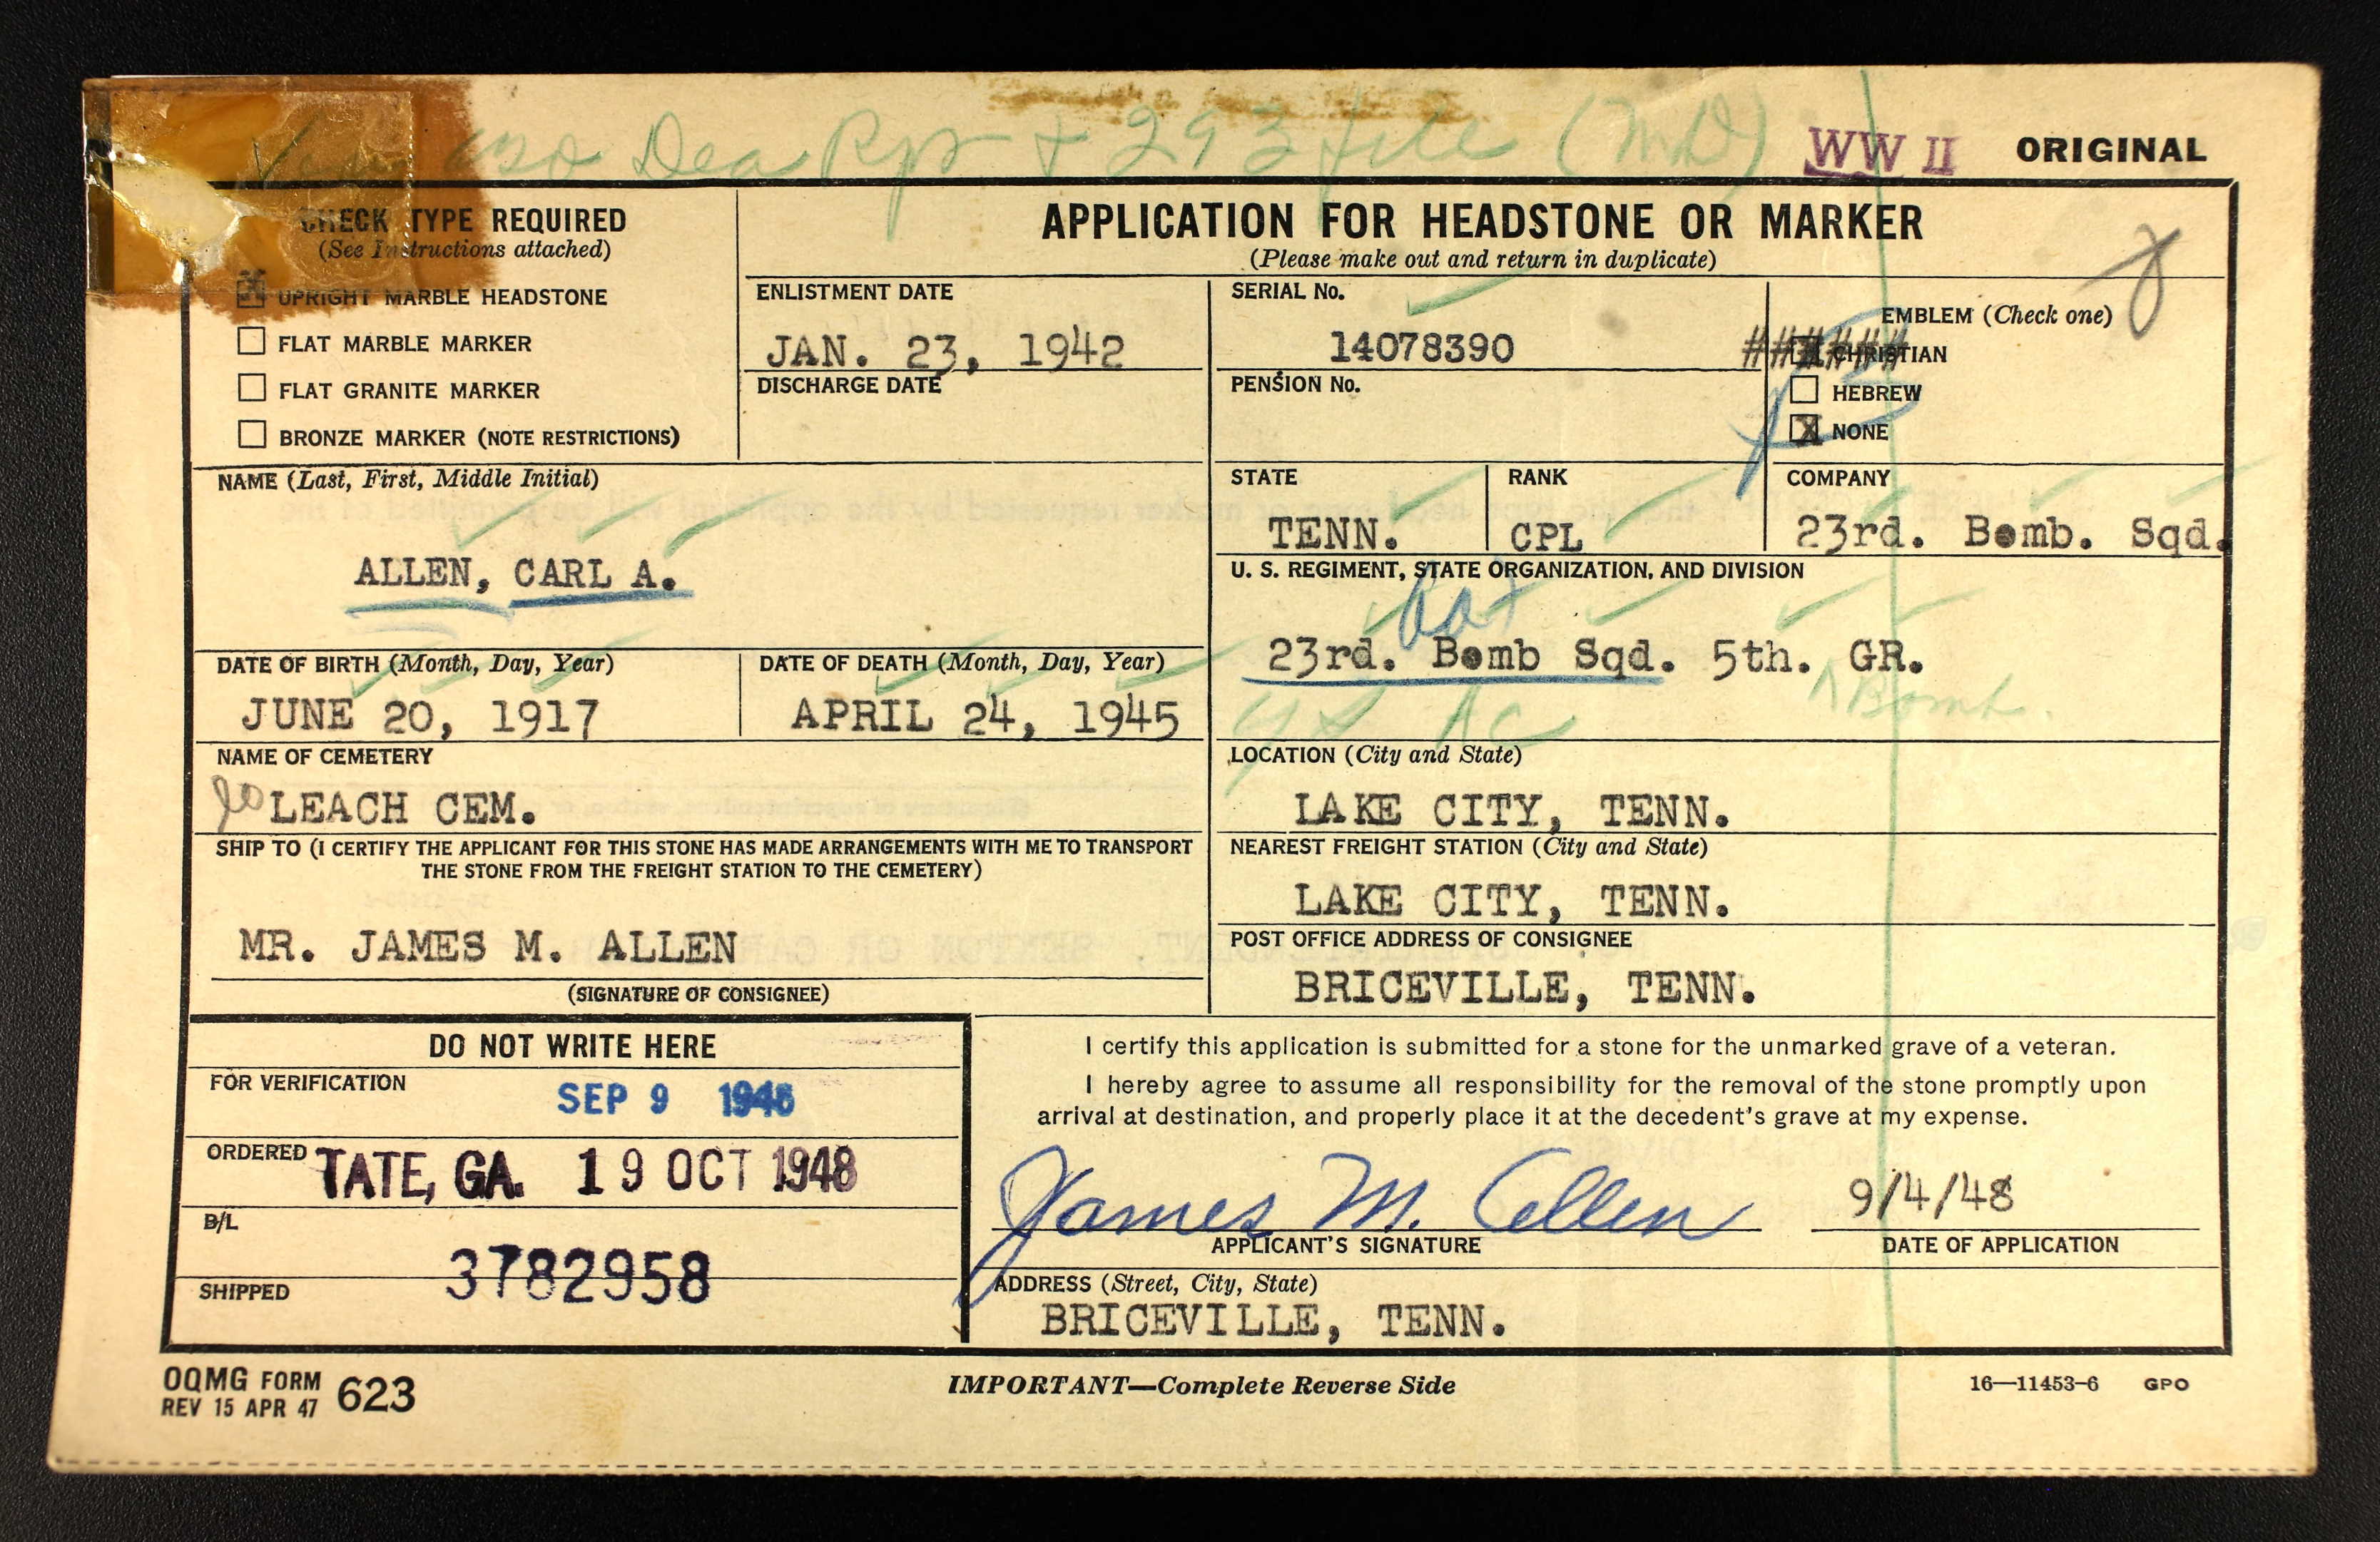 Dea Rpt + 293 file (MD)
WW II ORIGINAL
CHECK TYPE REQUIRED
(See Instructions attached)
X UPRIGHT MARBLE HEADSTONE
FLAT MARBLE MARKER
FLAT GRANITE MARKER
BRONZE MARKER (NOTE RESTRICTIONS)
APPLICATION FOR HEADSTONE OR MARKER
(Please make out and return in duplicate)
ENLISTMENT DATE
JAN. 23, 1942
DISCHARGE DATE
SERIAL No.
14078390
PENSION No.
EMBLEM (Check one)
###### CHRISTIAN
HEBREW
X NONE
NAME (Last, First, Middle Initial)
ALLEN, CARL A.
STATE
TENN.
RANK
CPL
COMPANY
23rd. Bomb. Sqd.
U. S. REGIMENT, STATE ORGANIZATION, AND DIVISION
23rd. Bomb Sqd. 5th. GR.
Bomb.
AC
DATE OF BIRTH (Month, Day, Year)
JUNE 20, 1917
DATE OF DEATH (Month, Day, Year)
APRIL 24, 1945
NAME OF CEMETERY
LEACH CEM.
LOCATION (City and State)
LAKE CITY, TENN.
SHIP TO (I CERTIFY THE APPLICANT FOR THIS STONE HAS MADE ARRANGEMENTS WITH ME TO TRANSPORT
THE STONE FROM THE FREIGHT STATION TO THE CEMETERY)
MR. JAMES M. ALLEN
(SIGNATURE OF CONSIGNEE)
NEAREST FREIGHT STATION (City and State)
LAKE CITY, TENN.
POST OFFICE ADDRESS OF CONSIGNEE
BRICEVILLE, TENN.
DO NOT WRITE HERE
FOR VERIFICATION
SEP 9 1948
ORDERED TATE, GA. 19 OCT 1948
B/L
3782958
SHIPPED
I certify this application is submitted for a stone for the unmarked grave of a veteran.
I hereby agree to assume all responsibility for the removal of the stone promptly upon
arrival at destination, and properly place it at the decedent's grave at my expense.
James M. Allen 9/4/48
APPLICANT'S SIGNATURE DATE OF APPLICATION
ADDRESS (Street, City, State)
BRICEVILLE, TENN.
OQMG FORM 623
REV 15 APR 47
IMPORTANT—Complete Reverse Side
16—11453-6 GPO